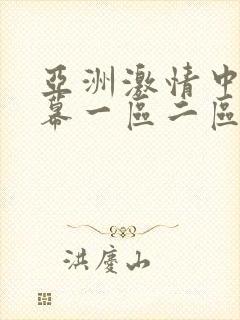 亞洲激情中
幕一區二區
洪慶山